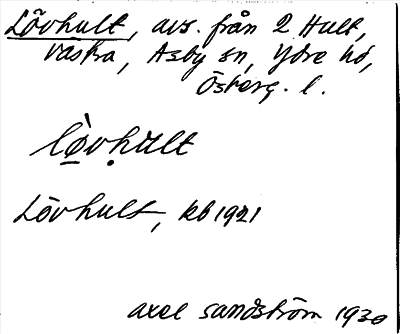 Lövhult, avs. från 2 Hult,
Västra, Asby sn, Ydre hd,
Österg. l.
lò̱vhụlt
Lövhult, kb 1921
axel sandström 1930